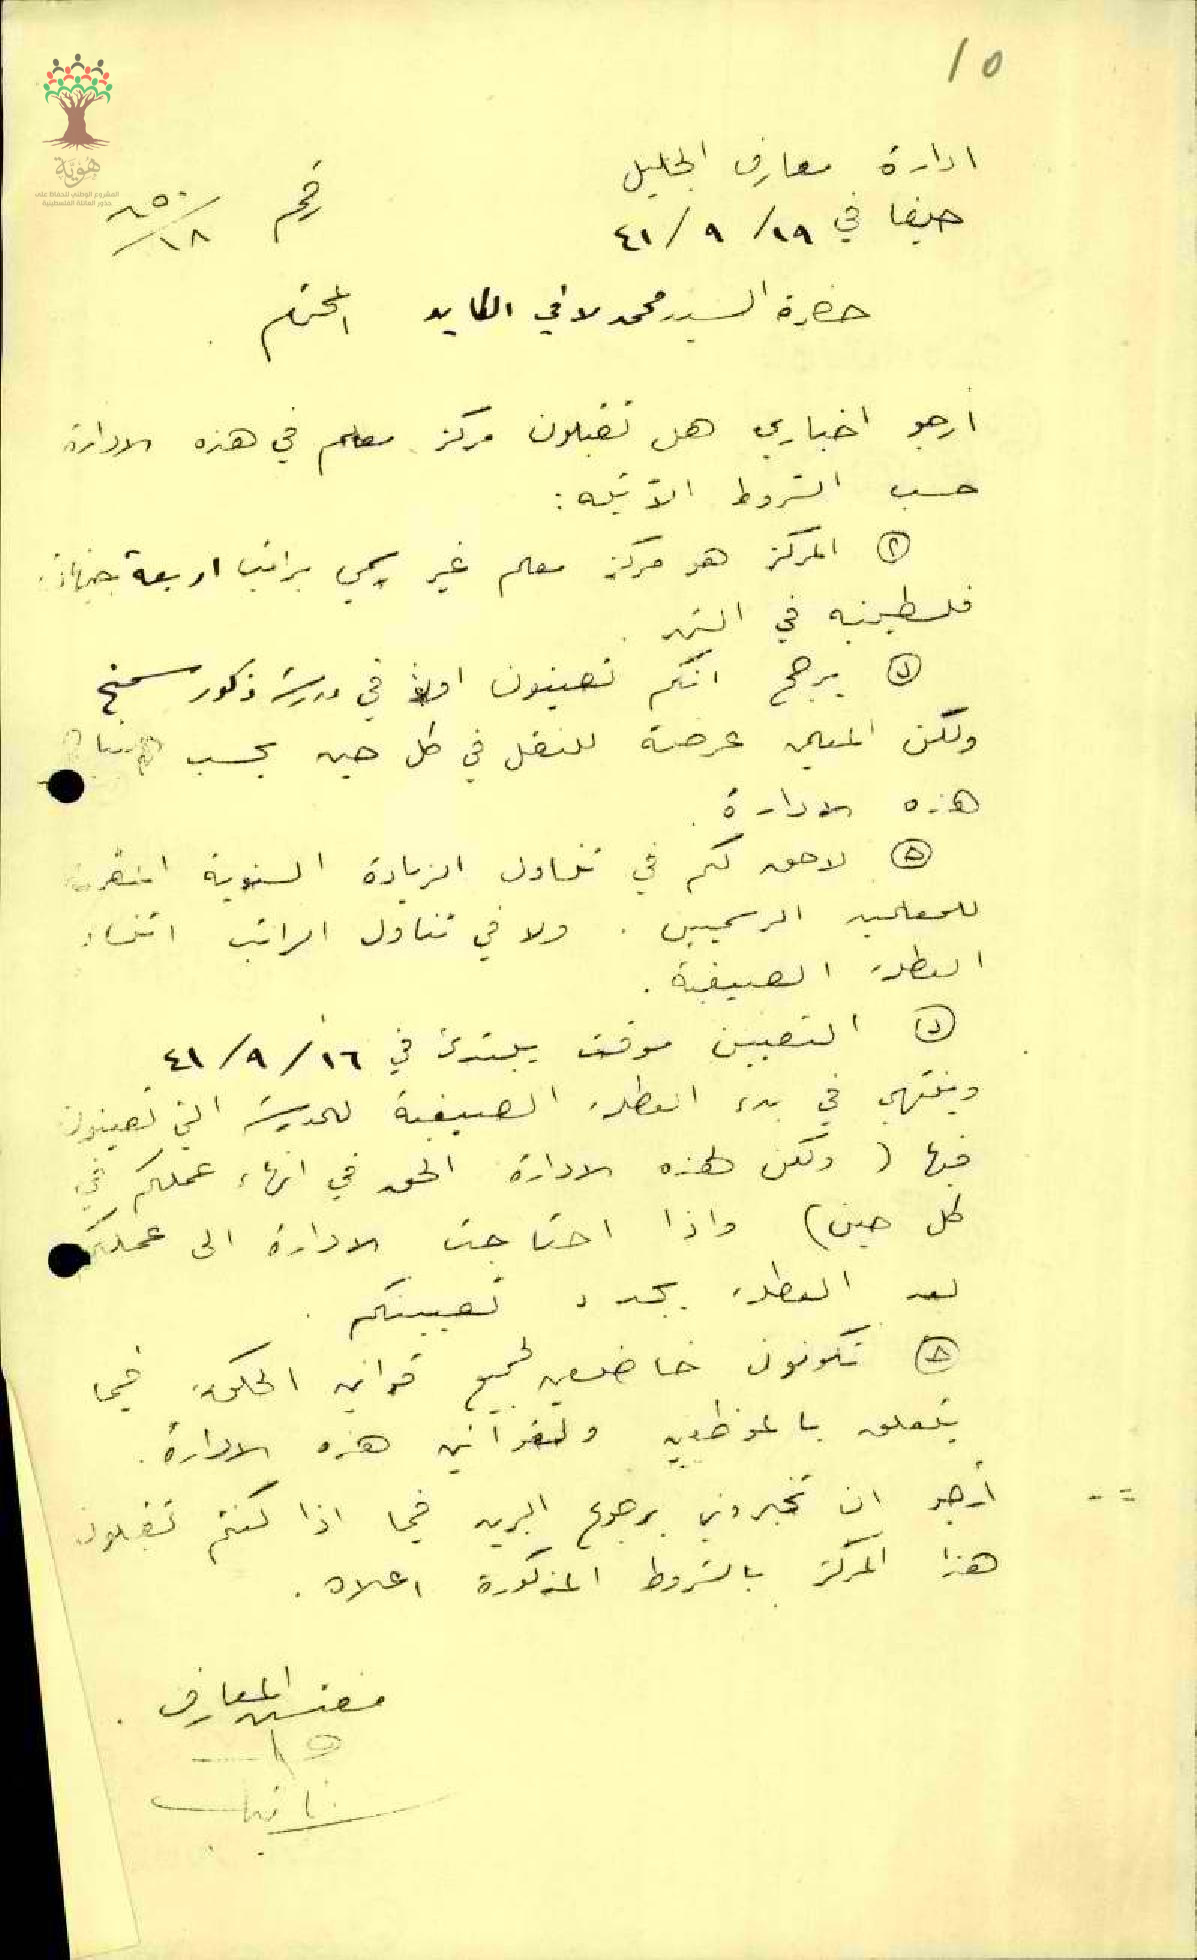 10
هُويَّة
المشروع الوطني للحفاظ على
جذور العائلة الفلسطينية
ادارة معارف الجليل
حيفا في ١٩/ ٩ / ٤١ رقم
حضرة السيد محمد لافي الكايد المحترم
أرجو اخباري هل تقبلون مركز معلم في هذه الادارة
حسب الشروط الآتيه :
المركز هو مركز معلم غير رسمي براتب اربعة جنيهات
فلسطينيه في الشهر .
يرجح انكم تعينون اولاً في مدرسة ذكور سمخ
ولكن المعلمين عرضة للنقل في كل حين بحسب
هذه الادارة .
لا حق لكم في تناول الزيادة السنوية المقررة
للمعلمين الرسميين . ولا في تناول الراتب اثناء
العطلة الصيفية .
التعيين موقت يبتدئ في ١٦ / ٩ / ٤١
وينتهي في بدء العطلة الصيفية للمدرسة التي تعينون
فيها ( ولكن لهذه الادارة الحق في انهاء عملكم في
كل حين) واذا احتاجت الادارة الى عملكم
بعد العطلة يجدد تعيينكم .
تكونون خاضعين لجميع قوانين الحكومة فيما
يتعلق بالموظفين ولقوانين هذه الادارة .
أرجو ان تخبروني برجوع البريد فيما اذا كنتم تقبلون
هذا المركز بالشروط المذكورة اعلاه .
مفتش المعارف .